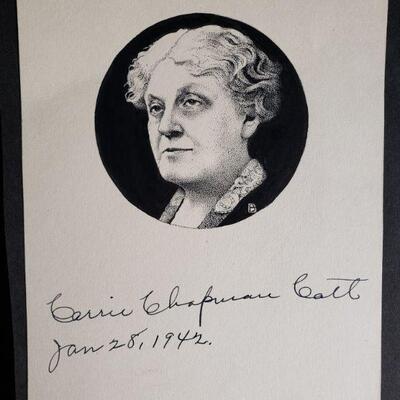 Carrie Chapman Catt
Jan 28, 1942.